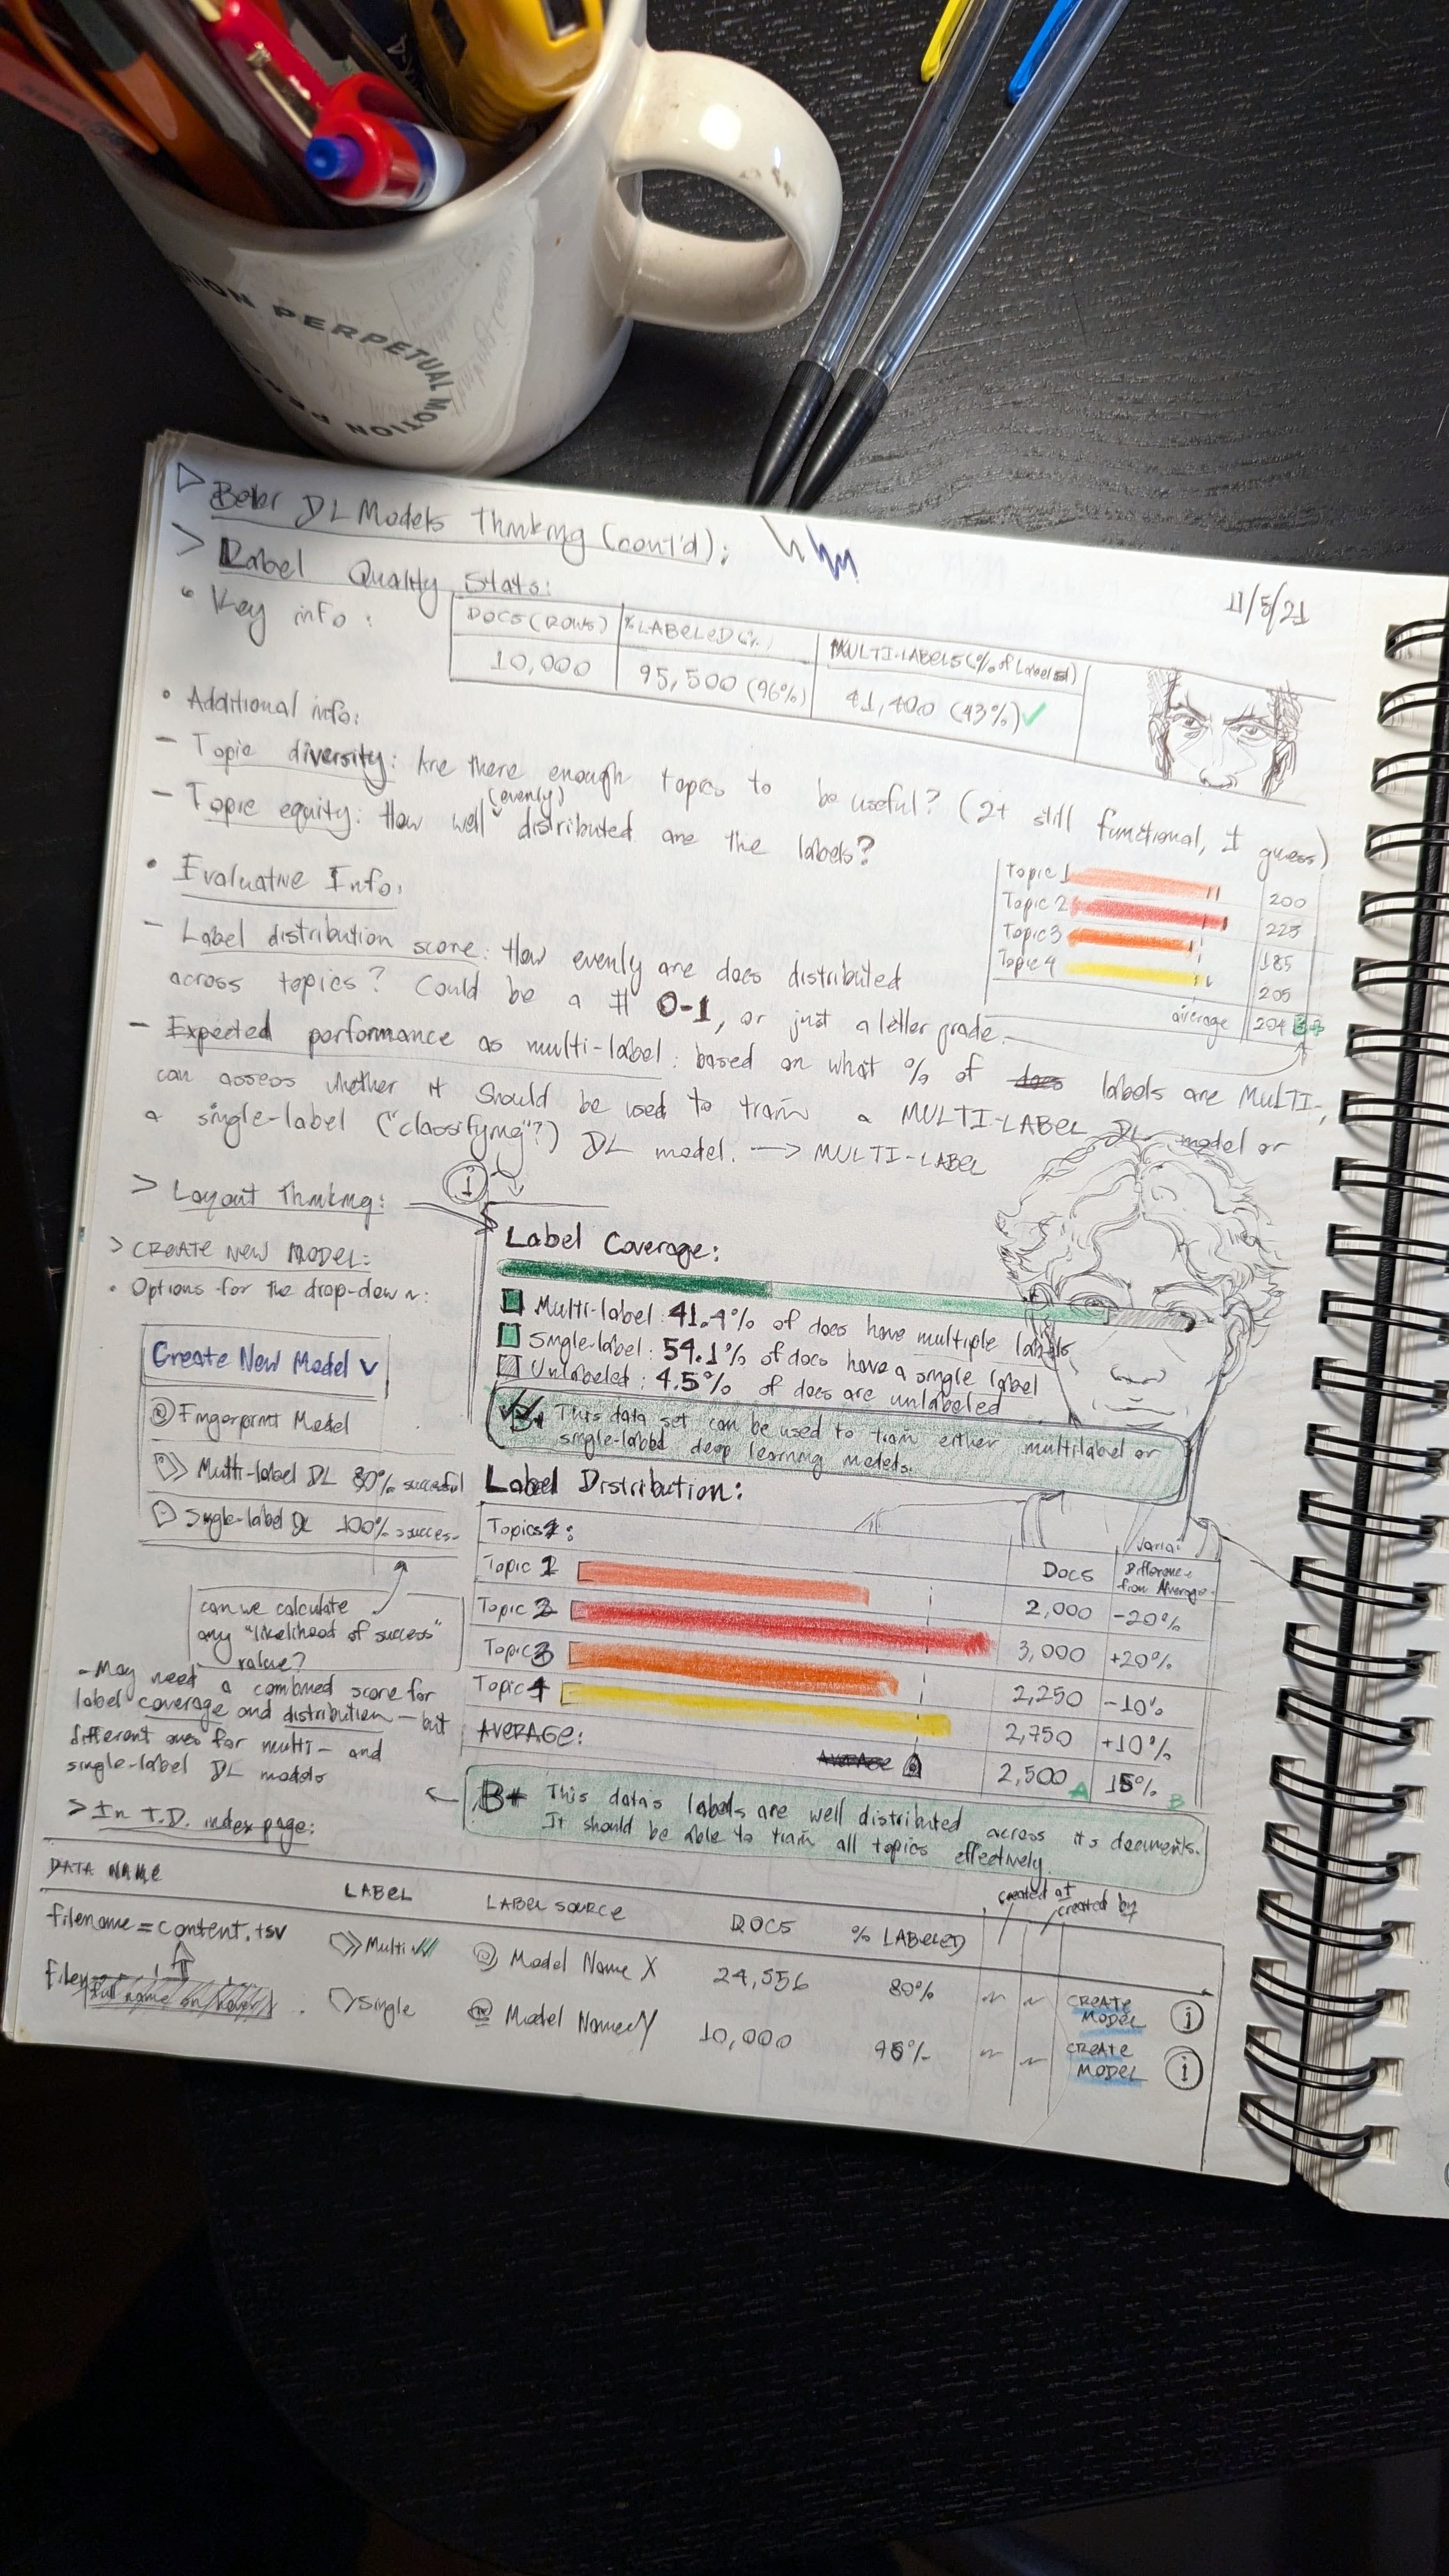 TION PERPETUAL MOTION PER
▷ Better DL Models Thinking (cont'd):
11/5/21
> Label Quality Stats:
• Key info:
DOCS (ROWS) % LABELED (%) MULTI-LABELS (% of Labeled)
10,000 95,500 (96%) 41,400 (43%) ✓
• Additional info:
- Topic diversity: Are there enough topics to be useful? (2+ still functional, I guess)
- Topic equity: How well (evenly) distributed are the labels?
• Evaluative Info:
Topic 1 200
Topic 2 225
Topic 3 185
Topic 4 205
average 204
- Label distribution score: How evenly are docs distributed
across topics? Could be a # 0-1, or just a letter grade.
- Expected performance as multi-label: based on what % of docs labels are MULTI-,
can assess whether it should be used to train a MULTI-LABEL DL model or
a single-label ("classifying"?) DL model. → MULTI-LABEL
> Layout Thinking:
> CREATE NEW MODEL:
• Options for the drop-down:
Create New Model v
Fingerprint Model
Multi-label DL 80% successful
Single-label DL 100% success
can we calculate
any "likelihood of success"
value?
- May need a combined score for
label coverage and distribution — but
different ones for multi- and
single-label DL models
i
Label Coverage:
Multi-label: 41.4% of docs have multiple labels
Single-label: 54.1% of docs have a single label
Unlabeled: 4.5% of docs are unlabeled
This data set can be used to train either multilabel or
single-label deep learning models.
Label Distribution:
Topics: DOCS Difference from Average
Topic 1 2,000 -20%
Topic 2 3,000 +20%
Topic 3 2,250 -10%
Topic 4 2,750 +10%
AVERAGE: AVERAGE 2,500 A 15% B
B+ This data's labels are well distributed across its documents.
It should be able to train all topics effectively.
> In T.D. index page:
DATA NAME LABEL LABEL SOURCE DOCS % LABELED created at created by
filename=content.tsv Multi Model Name X 24,556 80% CREATE MODEL i
full name on hover Single Model Name Y 10,000 96% CREATE MODEL i